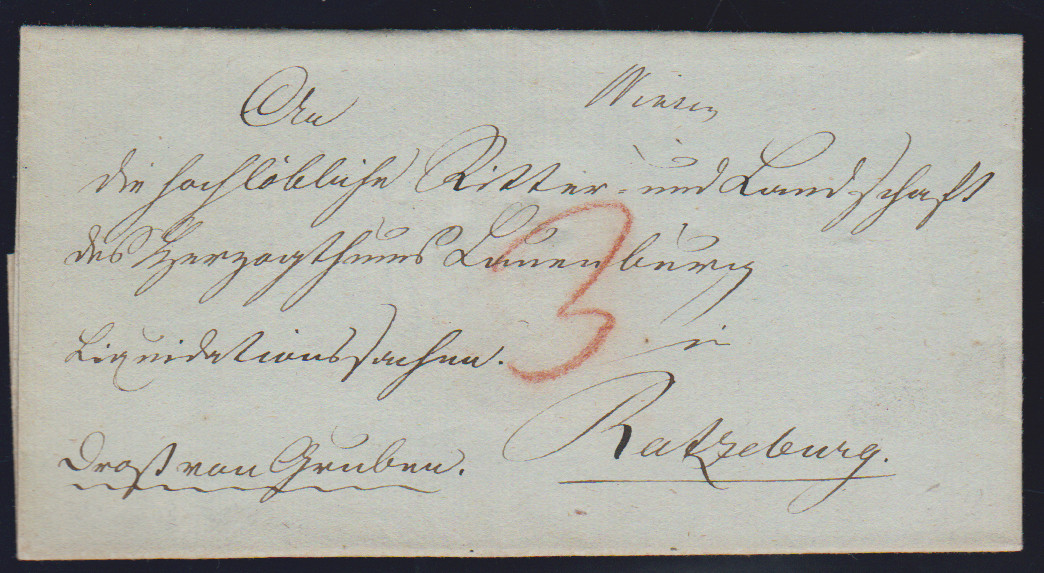 An
die hochlöbliche Ritter- und Landschaft
des Herzogthums Lauenburg
3
Liquidationssachen.
in
Ratzeburg.
Drost von Gruben.